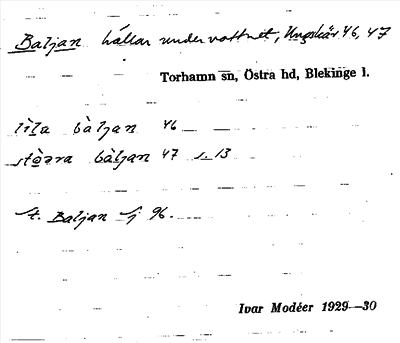 Baljan hällar under vattnet, Ungskär 46, 47
Torhamn sn, Östra hd, Blekinge l.
lìla bàljan 46
stòra bàljan 47 s. 13
St. Baljan Sj 96.
Ivar Modéer 1929—30